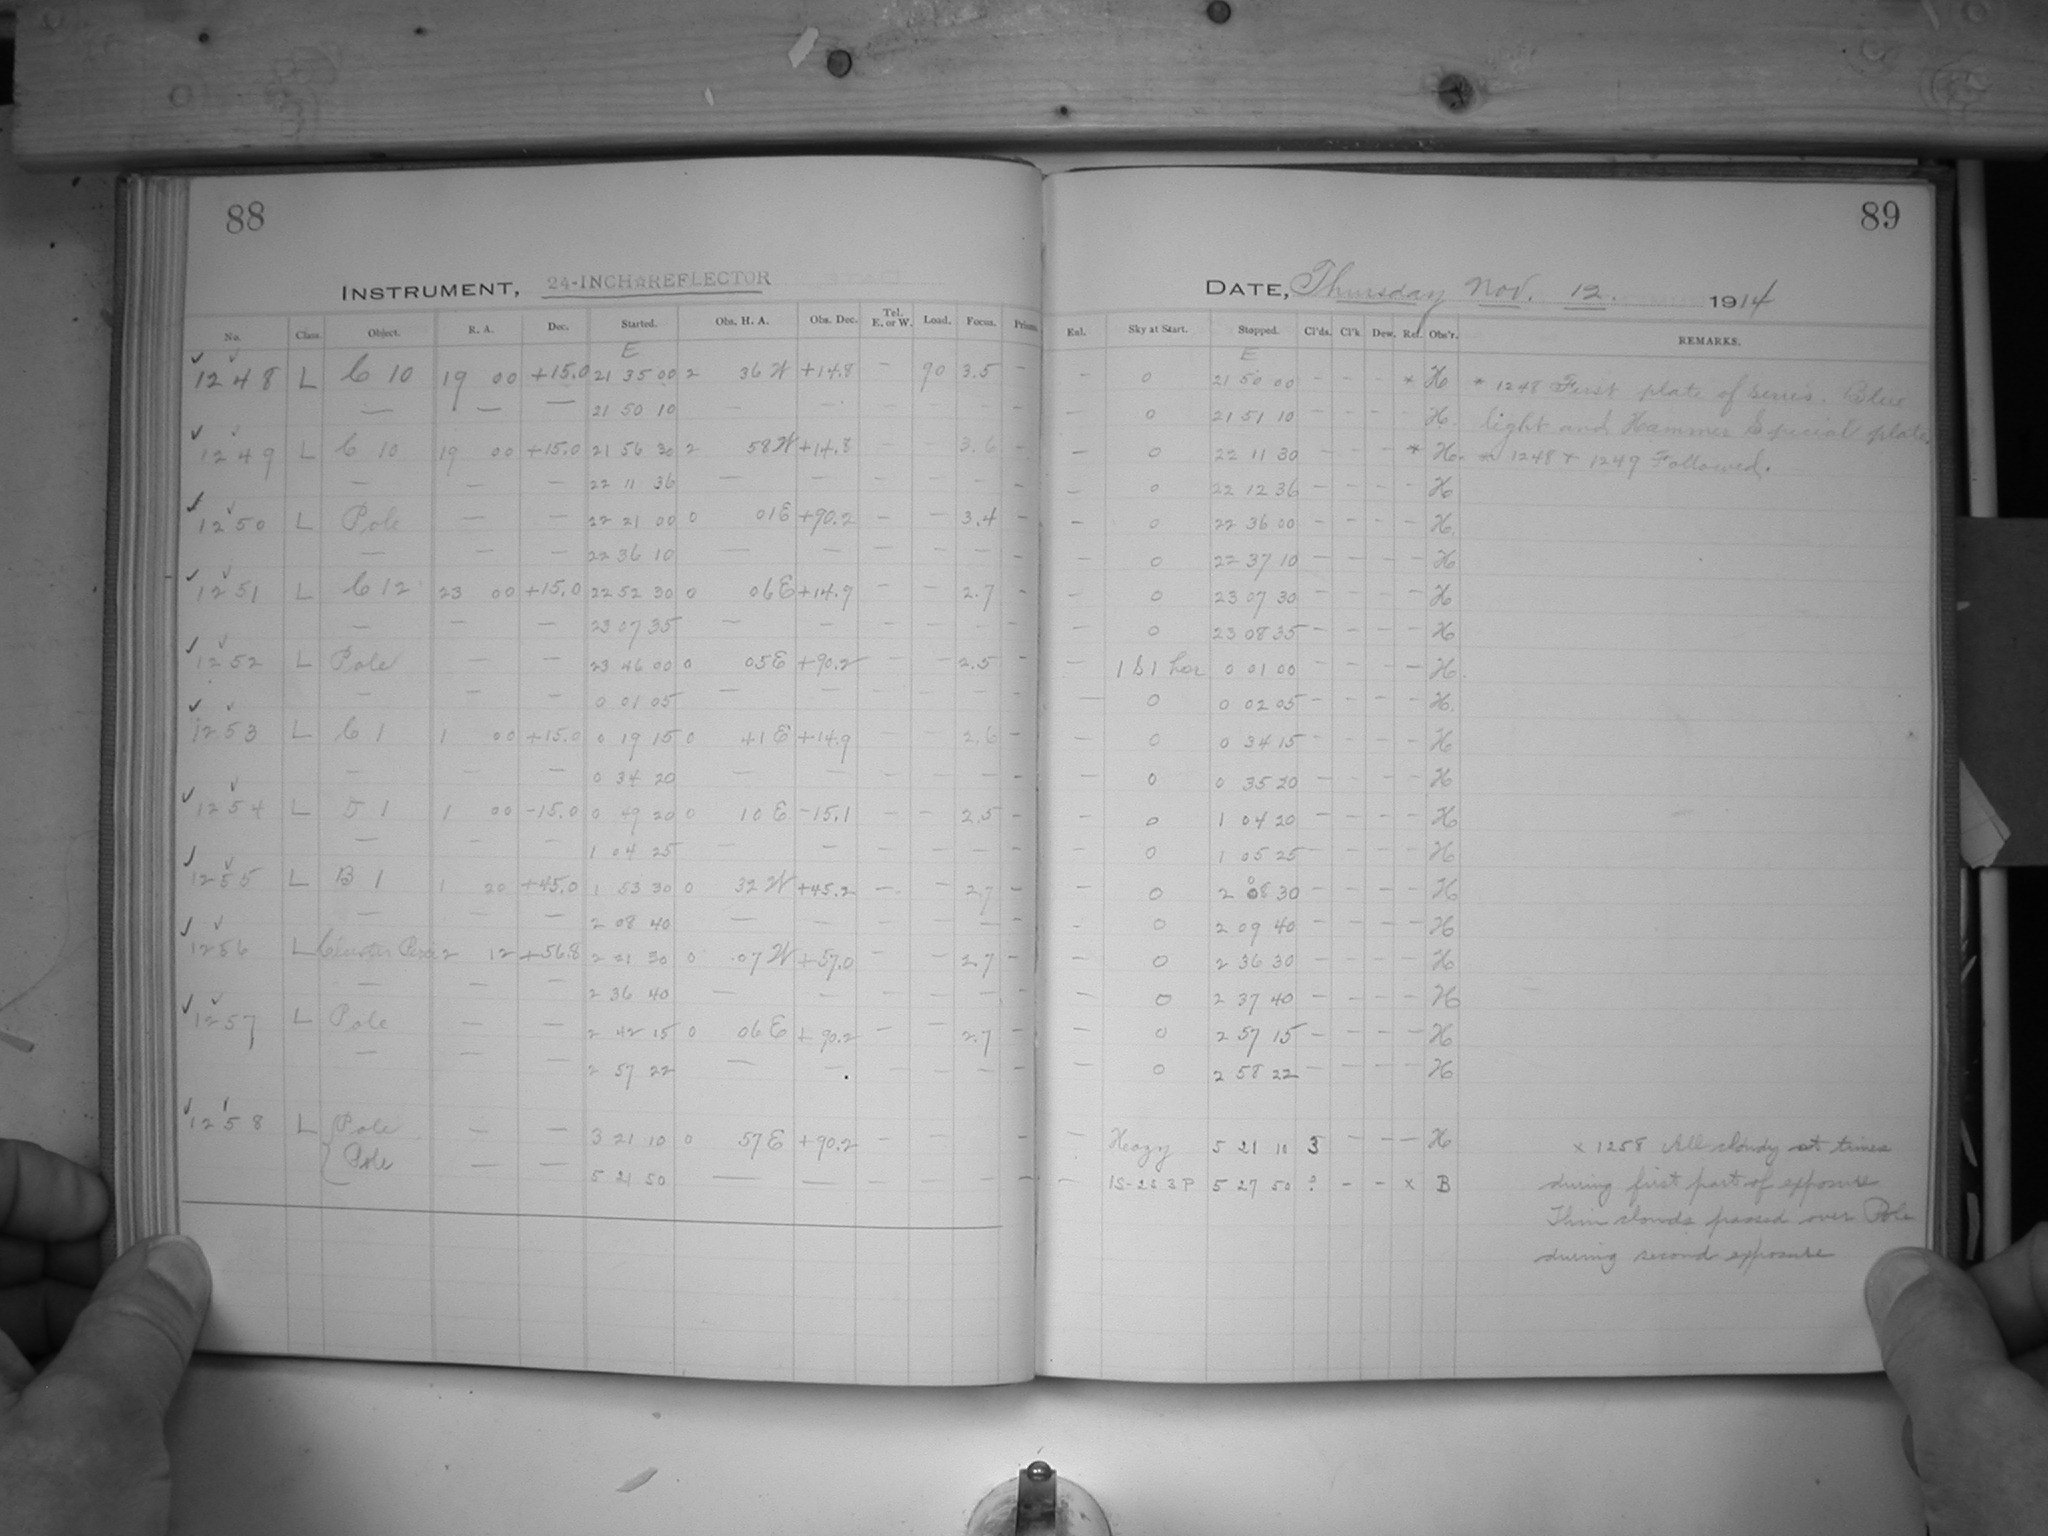 88
INSTRUMENT, 24-INCH☆REFLECTOR
No. Class. Object. R. A. Dec. Started. Obs. H. A. Obs. Dec. Tel. E. or W. Load. Focus. Prisms.
E
1248 L C 10 19 00 +15.0 21 35 00 2 36 W +14.8 — 90 3.5 —
— — — 21 50 10 — —
1249 L C 10 19 00 +15.0 21 56 30 2 58 W +14.8 — — 3.6 —
— — — 22 11 36 — — — — — —
1250 L Pole — — 22 21 00 0 01 E +90.2 — — 3.4 —
— — — 22 36 10 — — — — — —
1251 L C 12 23 00 +15.0 22 52 30 0 06 E +14.9 — — 2.7 —
— — — 23 07 35 — — — — — —
1252 L Pole — — 23 46 00 0 05 E +90.2 — — 2.5 —
— — — 0 01 05 — — — — — —
1253 L C 1 1 00 +15.0 0 19 15 0 41 E +14.9 — — 2.6 —
— — — 0 34 20 — — — — — —
1254 L D 1 1 00 -15.0 0 49 20 0 10 E -15.1 — — 2.5 —
— — — 1 04 25 — — — — — —
1255 L B 1 1 20 +45.0 1 53 30 0 32 W +45.2 — — 2.7 —
— — — 2 08 40 — — — — — —
1256 L Cluster Persei 2 12 +56.8 2 21 30 0 07 W +57.0 — — 2.7 —
— — — 2 36 40 — — — — — —
1257 L Pole — — 2 42 15 0 06 E +90.2 — — 2.7 —
— — — 2 57 22 — — — — — —
1258 L Pole — — 3 21 10 0 57 E +90.2 — —
Pole — — 5 21 50 — — — — — —
89
DATE, Thursday Nov. 12. 1914
Enl. Sky at Start. Stopped. Cl'ds. Cl'k Dew. Ref. Obs'r. REMARKS.
E
— 0 21 50 00 — — — * H * 1248 First plate of series. Blue
— 0 21 51 10 — — — — H. light and Hammer Special plate.
— 0 22 11 30 — — — * H. * 1248 + 1249 Followed.
— 0 22 12 36 — — — — H
— 0 22 36 00 — — — — H.
— 0 22 37 10 — — — — H
— 0 23 07 30 — — — — H
— 0 23 08 35 — — — — H
— 1 S 1 hor 0 01 00 — — — — H.
— 0 0 02 05 — — — — H.
— 0 0 34 15 — — — — H
— 0 0 35 20 — — — — H
— 0 1 04 20 — — — — H
— 0 1 05 25 — — — — H
— 0 2 08 30 — — — — H
- 0 2 09 40 — — — — H
— 0 2 36 30 — — — — H
— 0 2 37 40 — — — — H
— 0 2 57 15 — — — — H
— 0 2 58 22 — — — — H
— Heazy 5 21 10 3 — — — H x 1258 All cloudy at times
— 1S-2S 3P 5 27 50 ? - - x B during first part of exposure
Thin clouds passed over Pole
during second exposure